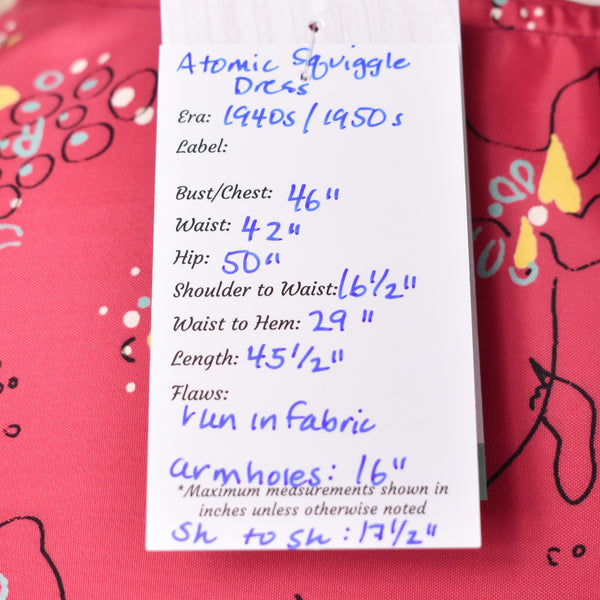 Atomic Squiggle
Dress
Era: 1940s / 1950s
Label:
Bust/Chest: 46"
Waist: 42"
Hip: 50"
Shoulder to Waist: 16 1/2"
Waist to Hem: 29"
Length: 45 1/2"
Flaws:
run in fabric
armholes: 16"
*Maximum measurements shown in
inches unless otherwise noted
sh to sh: 17 1/2"